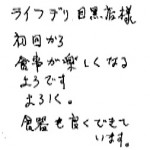 ライフデリ目黒店様
初回から
食事が楽しくなる
ようです
よろしく。
食器も良くできて
います。